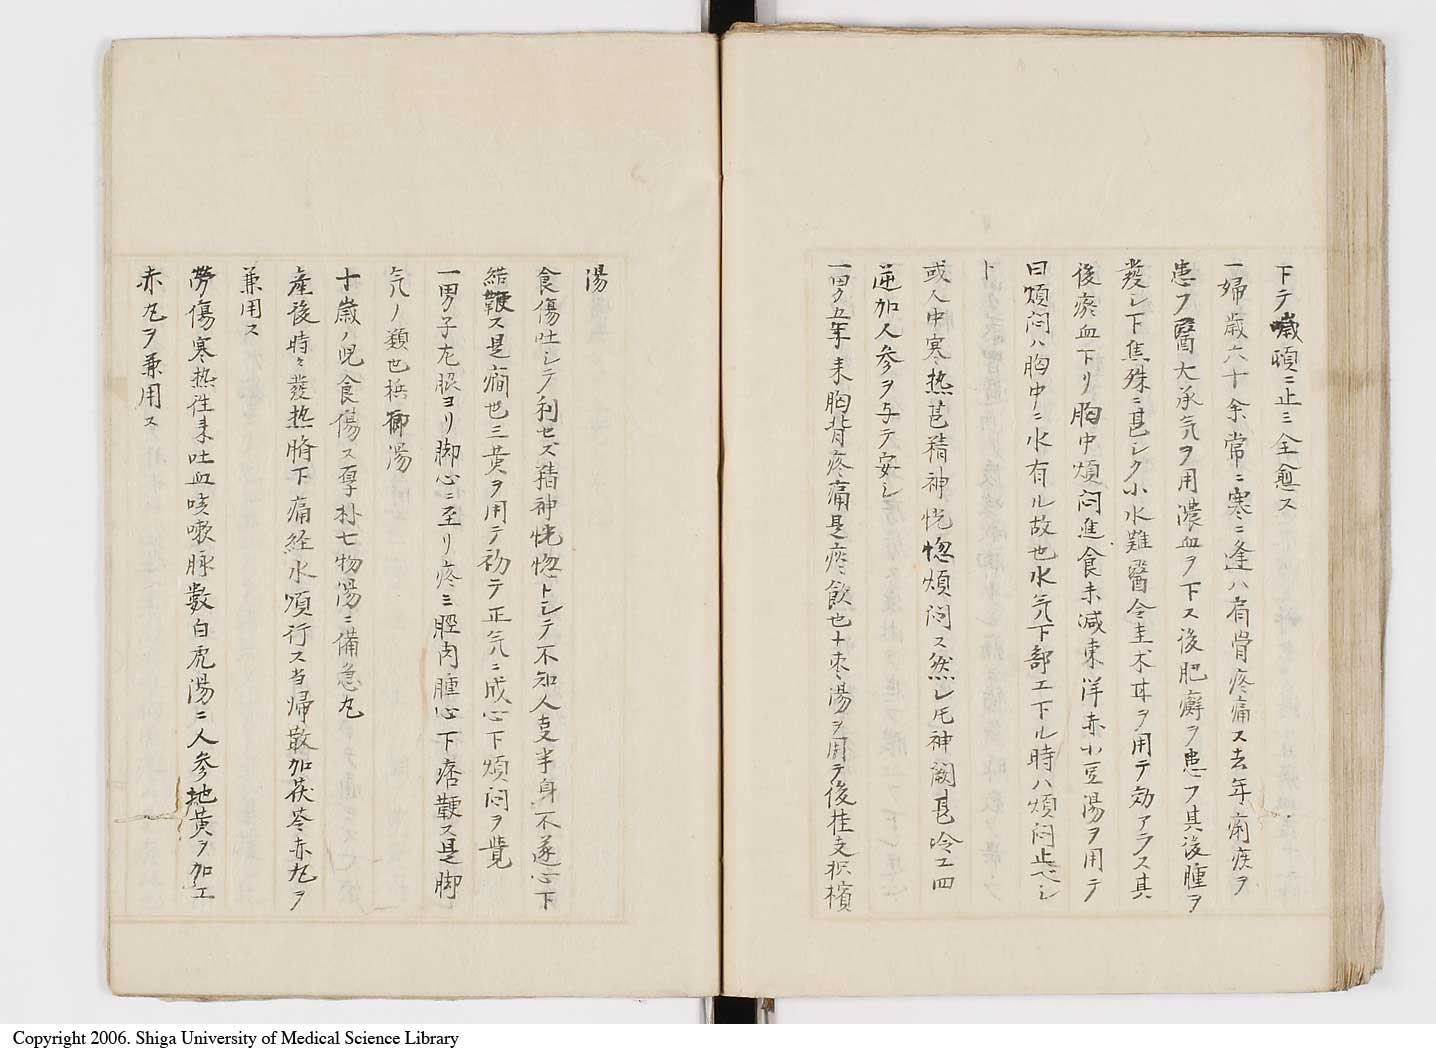 下テ喊頓ニ止ミ全愈ス
一婦歳六十余常ニ寒ニ逢ハ肩骨疼痛ス去年痢疾ヲ
患フ醫大承気ヲ用濃血ヲ下ス後肥癬ヲ患フ其後腫ヲ
發シ下焦殊ニ甚シク小水難醫令圭朮ヲ用テ効アラス其
後瘀血下リ胸中煩悶進食未减東洋赤小豆湯ヲ用テ
曰煩悶ハ胸中ニ水有ル故也水気下部エ下ル時ハ煩悶止ヘシ
ト
或人中寒熱芭精神恍惚煩悶ス然レ𪜈神闕甚冷エ四
逆加人参ヲ与テ安シ
一四ノ五年来胸背疼痛是痰飲也十枣湯ヲ用テ後桂支枳檳
湯
食傷吐シテ利セズ精神恍惚トシテ不知人支半身不遂心下
結鞕ス是癇也三黄ヲ用テ初テ正気ニ成心下煩悶ヲ覚
一男子左䏶ヨリ脚心ニ至リ疼ミ脛肉腫心下痞鞕ス是脚
気ノ類也梹榔湯
十歳ノ児食傷ス厚朴七物湯ニ備急丸
産後時々發熱臍下痛経水順行ス当帰散加茯苓赤丸ヲ
兼用ス
労傷寒熱往来吐血咳嗽脉數白虎湯ニ人参地黄ヲ加エ
赤丸ヲ兼用ス
Copyright 2006. Shiga University of Medical Science Library